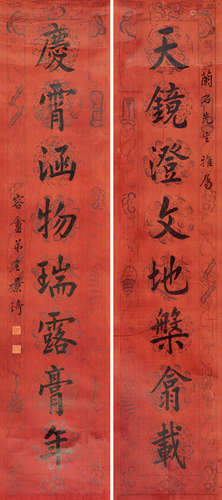 蘭石先生雅屬
天鏡澄文地槃翕載
慶霄涵物瑞露膏年
容盦弟景